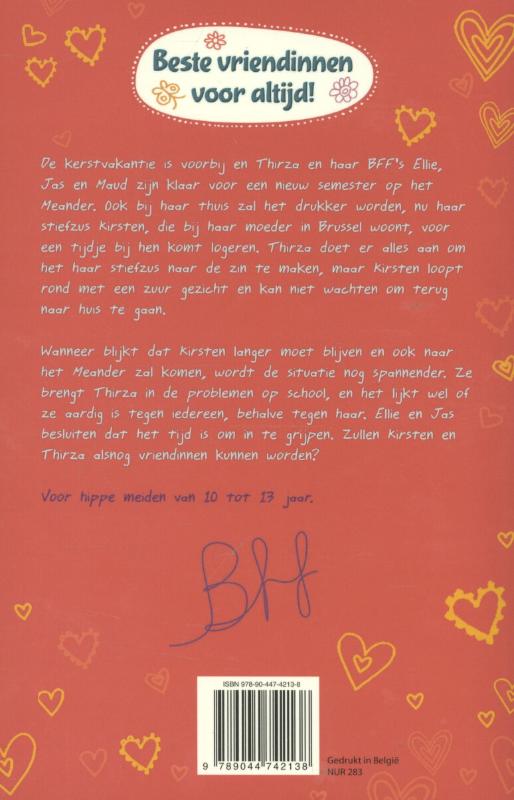 Beste vriendinnen
voor altijd!
De kerstvakantie is voorbij en Thirza en haar BFF's Ellie,
Jas en Maud zijn klaar voor een nieuw semester op het
Meander. Ook bij haar thuis zal het drukker worden, nu haar
stiefzus Kirsten, die bij haar moeder in Brussel woont, voor
een tijdje bij hen komt logeren. Thirza doet er alles aan om
het haar stiefzus naar de zin te maken, maar Kirsten loopt
rond met een zuur gezicht en kan niet wachten om terug
naar huis te gaan.
Wanneer blijkt dat Kirsten langer moet blijven en ook naar
het Meander zal komen, wordt de situatie nog spannender. Ze
brengt Thirza in de problemen op school, en het lijkt wel of
ze aardig is tegen iedereen, behalve tegen haar. Ellie en Jas
besluiten dat het tijd is om in te grijpen. Zullen Kirsten en
Thirza alsnog vriendinnen kunnen worden?
Voor hippe meiden van 10 tot 13 jaar.
Bff
ISBN 978-90-447-4213-8
9 789044 742138
Gedrukt in België
NUR 283